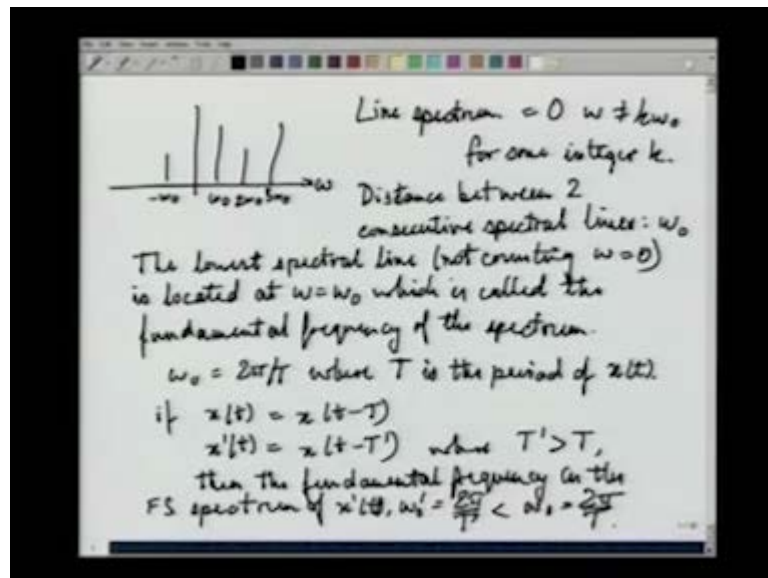 Line spectrum = 0 ω ≠ kω₀
for some integer k.
-ω₀ ω₀ 2ω₀ 3ω₀ → ω
Distance between 2
consecutive spectral lines: ω₀
The lowest spectral line (not counting ω=0)
is located at ω=ω₀ which is called the
fundamental frequency of the spectrum.
ω₀ = 2π/T where T is the period of x(t).
if x(t) = x(t-T)
x'(t) = x(t-T') where T'>T,
then the fundamental frequency in the
FS spectrum of x'(t), ω₀' = 2π/T' < ω₀ = 2π/T.